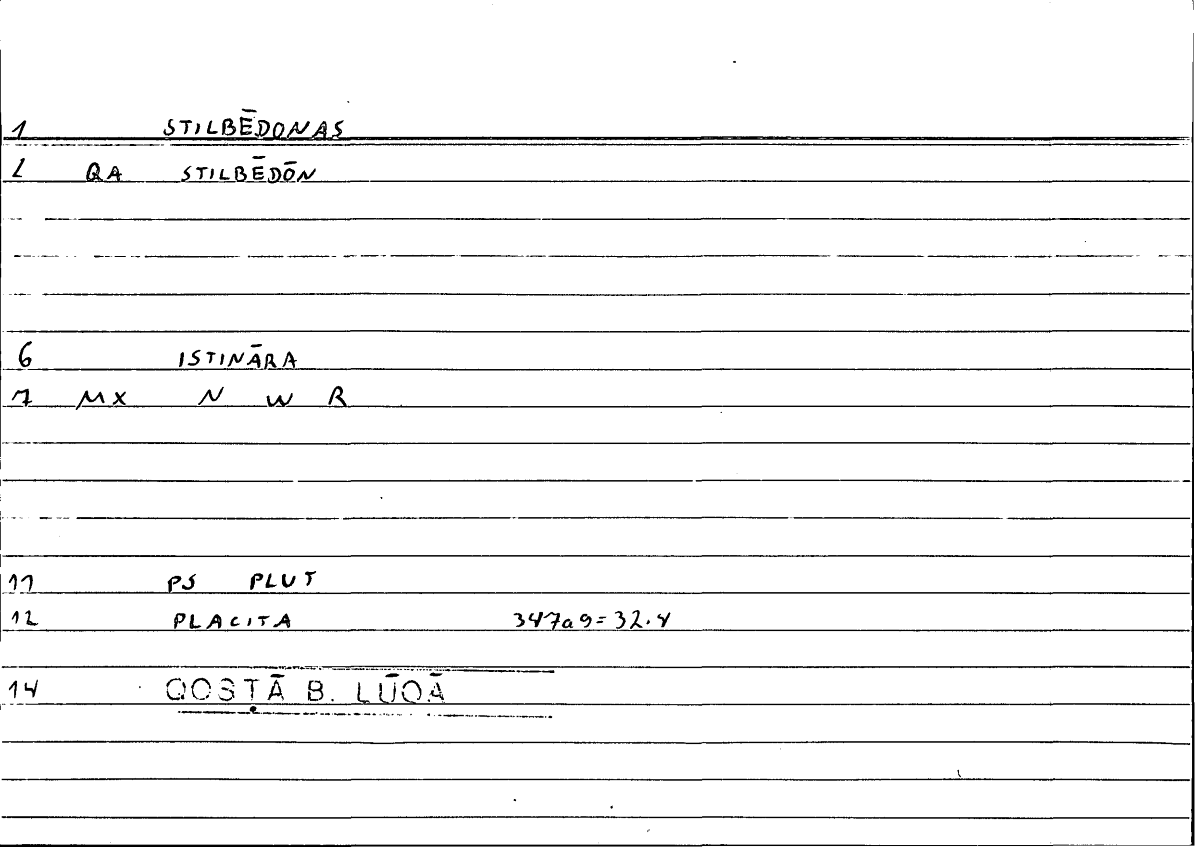 1 STILBĒDONAS
2 QA STILBĒDŌN
6 ISTINĀRA
7 MX N W R
11 PS PLUT
12 PLACITA 347a9=32.4
14 QOSṬĀ B. LŪQĀ